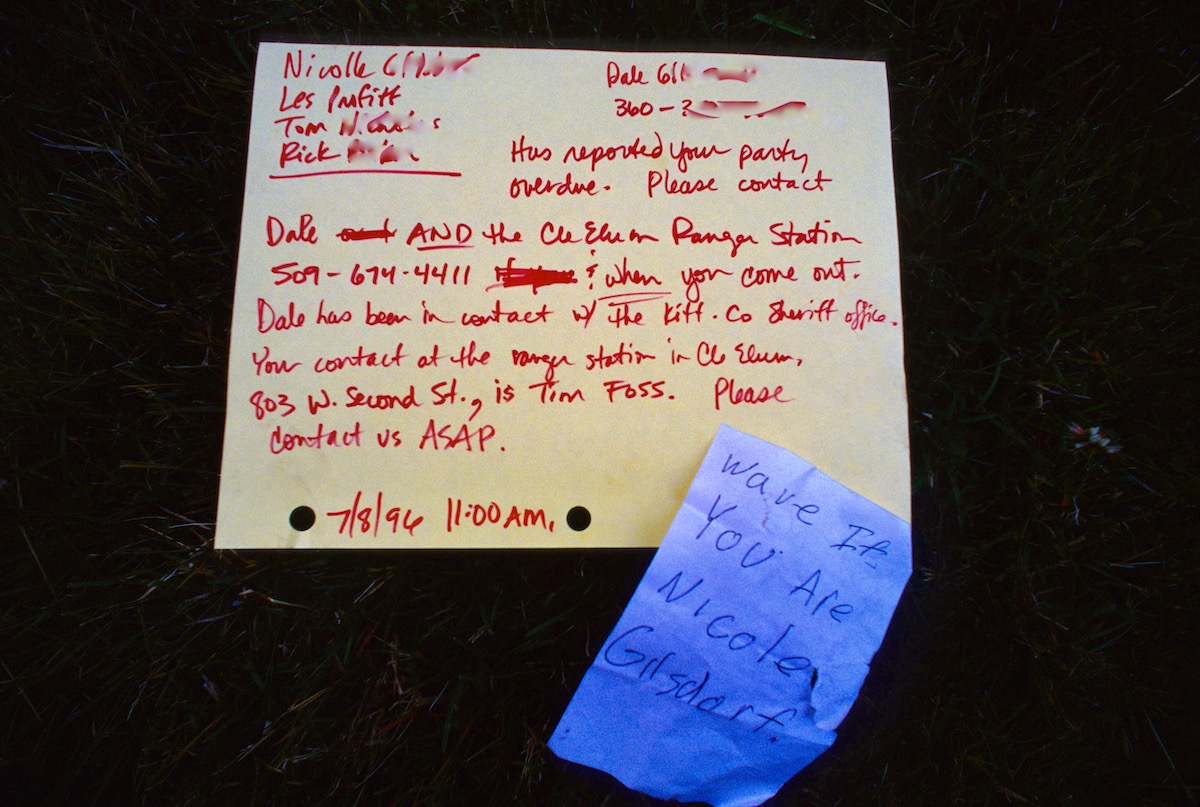 Nicolle
Les Profitt
Tom
Rick
Dale Gil
360-
Has reported your party
overdue. Please contact
Dale AND the Cle Elum Ranger Station
509-674-4411 & when you come out.
Dale has been in contact w/ the Kitt. Co Sheriff office.
Your contact at the ranger station in Cle Elum,
803 W. Second St., is Tim Foss. Please
contact us ASAP.
7/8/96 11:00 AM.
wave If
You Are
Nicole
Gilsdorf.